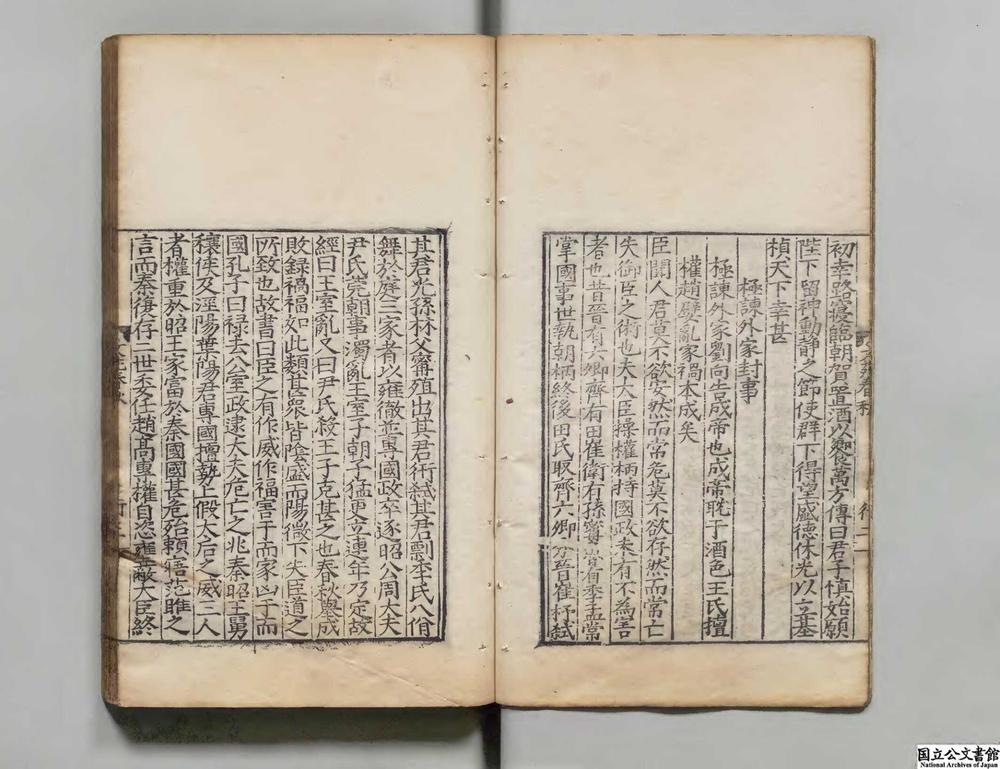 初幸路寢臨朝賀置酒以饗萬方傳曰君子愼始願
陛下留神動靜之節使群下得望盛德休光以立基
楨天下幸甚
極諫外家封事
極諫外家劉向告成帝也成帝耽于酒色王氏擅
權趙孽亂家禍本成矣
臣聞人君莫不欲安然而常危莫不欲存然而常亡
失御臣之術也夫大臣操權柄持國政未有不為害
者也昔晉有六卿齊有田崔衛有孫甯魯有季孟常
掌國事世執朝柄終後田氏取齊六卿分晉崔杼弑
其君光孫林父甯殖出其君衎弑其君剽季氏八佾
舞於庭三家者以雍徹並專國政卒逐昭公周大夫
尹氏筦朝事濁亂王室子朝子猛更立連年乃定故
經曰王室亂又曰尹氏殺王子克甚之也春秋舉成
敗録禍福如此類甚衆皆陰盛而陽微下失臣道之
所致也故書曰臣之有作威作福害于而家凶于而
國孔子曰禄去公室政逮大夫危亡之兆秦昭王舅
穰侯及涇陽葉陽君專國擅勢上假太后之威三人
者權重於昭王家富於秦國國甚危殆賴寤范雎之
言而秦復存二世委任趙高專權自恣壅蔽大臣終
国立公文書館
National Archives of Japan